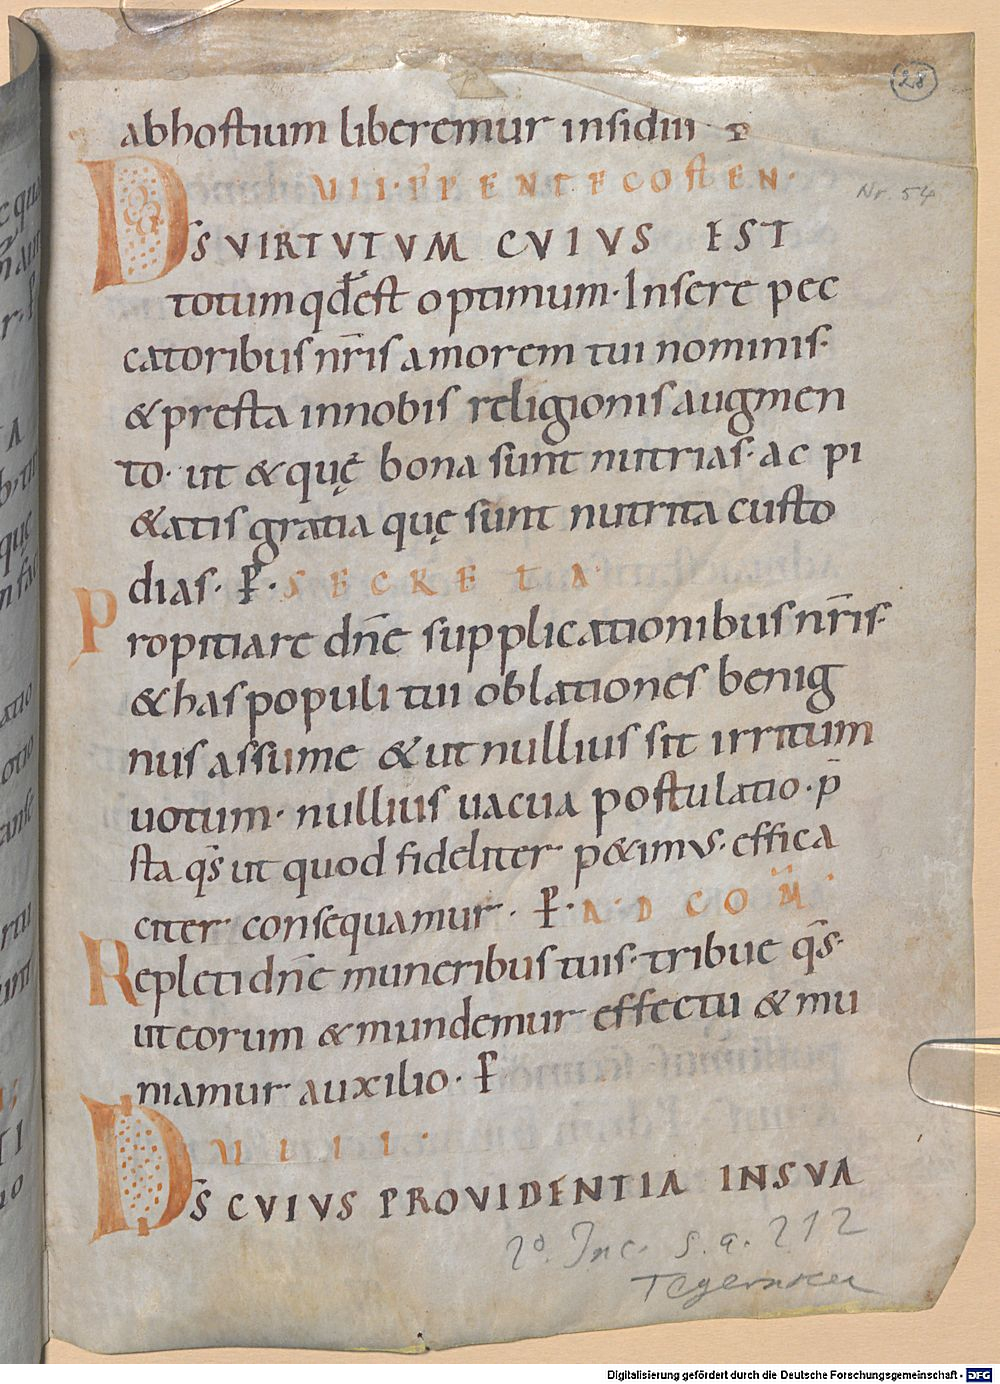 28
abhostium liberemur insidiis p̄
VII. P̄ PENTECOSTEN.
Nr. 54
DS̄ VIRTVTVM CVIVS EST
totum qd̄ est optimum. Insere pec
catoribus nr̄is amorem tui nominis.
& presta innobis religionis augmen
to. ut & quę bona sunt nutrias. ac pi
&atis gratia quę sunt nutrita custo
dias. P̄. SECRETA.
Propitiare dn̄e supplicationibus nr̄is.
& has populi tui oblationes benig
nus assume & ut nullius sit irritum
uotum. nullius uacua postulatio. p̄
sta qs̄ ut quod fideliter p&imus. effica
citer consequamur. P̄. AD COM̄.
Repleti dn̄e muneribus tuis. tribue qs̄.
ut eorum & mundemur effectu & mu
niamur auxilio. P̄
VIII.
DS̄ CVIVS PROVIDENTIA INSVA
2° Inc. s.a. 212
Tegernsee
Digitalisierung gefördert durch die Deutsche Forschungsgemeinschaft - DFG